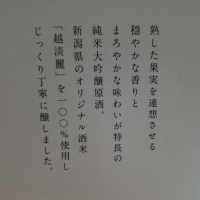 熟した果実を連想させる
穏やかな香りと
まろやかな味わいが特長の
純米大吟醸原酒。
新潟県のオリジナル酒米
『越淡麗』を一〇〇%使用し
じっくり丁寧に醸しました。